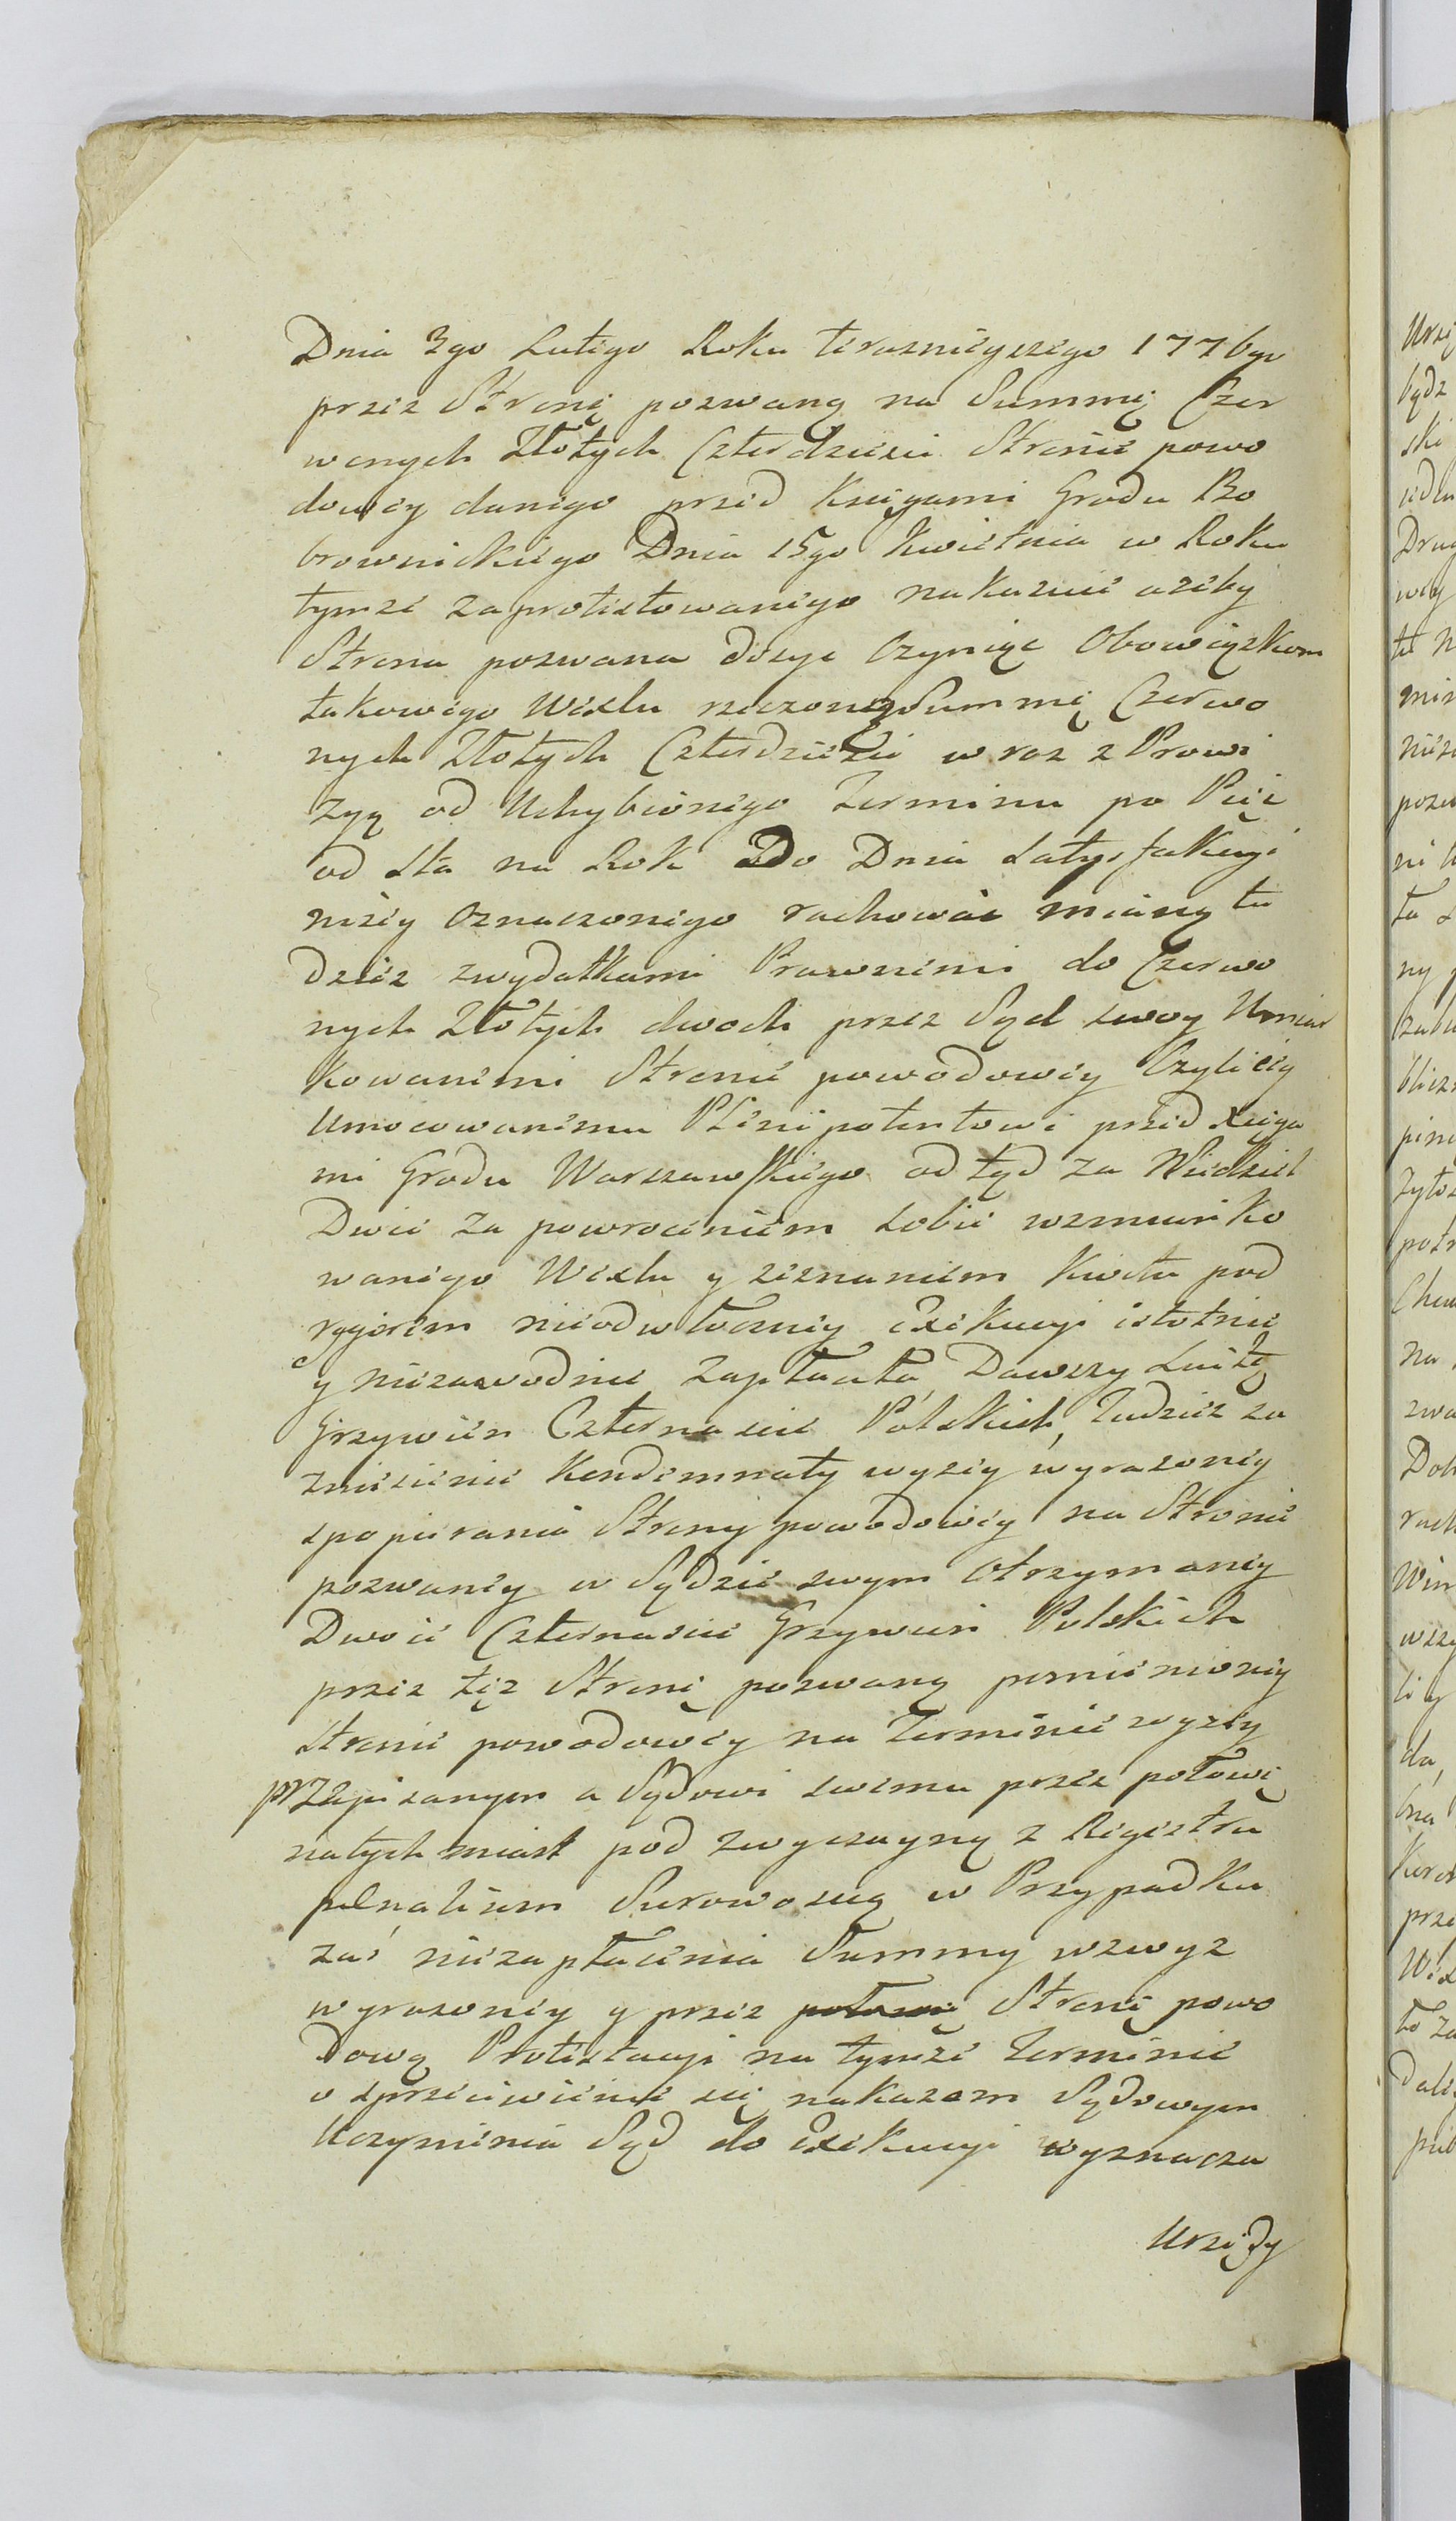 Dnia 3go Lutego Roku teraznieyszego 1776go
przez Stronę pozwaną na Summę Czer
wonych Złotych Czterdziesci Stronie powo
dowey danego przed Księgami Grodu Bo
brownickiego Dnia 15go Kwietnia w Roku
tymze zaprotestowanego nakazuie azeby
Strona pozwana dosyc Czyniąc Obowiązkom
takowego Wexlu rzeczoney Summę Czerwo
nych Złotych Czterdziesci wraz z Prowi
zyą od Uchybionego Terminu po Pięc
od Sta na Rok Do Dnia Satysfakcyi
nizey Oznaczonego rachowac mianą tu
dziez zwydatkami Prawnemi do Czerwo
nych Złotych dwoch przez Sąd swoy Umiar
kowanemi Stronie powodowey Czyli iey
Umocowanemu Plenipotentowi przed Xięga
mi Grodu Warszawskiego od tąd za Niedziel
Dwie za powroceniem sobie wzmianko
wanego Wexlu y zeznaniem Kwitu pod
rygorem nieodwłoczney Exekucyi istotnie
y niezawodnie zapłaciła, Dawszy Luitę
Grzywien Czternascie Polskich, Tudziez za
zniesienie Kondemnaty wyzey wyrazoney
z popierania Strony powodowey na Stronie
pozwaney w Sądzie swym Otrzymaney
Dwoie Czternascie Grzywien Polskich
przez tęz Stronę pozwaną pomienioney
Stronie powodowey na Terminie wyzey
przepisanym a Sądowi swemu przez połowę
natychmiast pod zwyczayną z Regestru
pænalium Surowoscią w Przypadku
zaś niezapłacenia Summy wzwyz
wyrazoney y przez połowę Stronę powo
Dową Protestacyi na tymże Terminie
o sprzeciwienie się nakazom Sądowym
Uczynienia Sąd do Exekucyi wyznacza
Urzędy